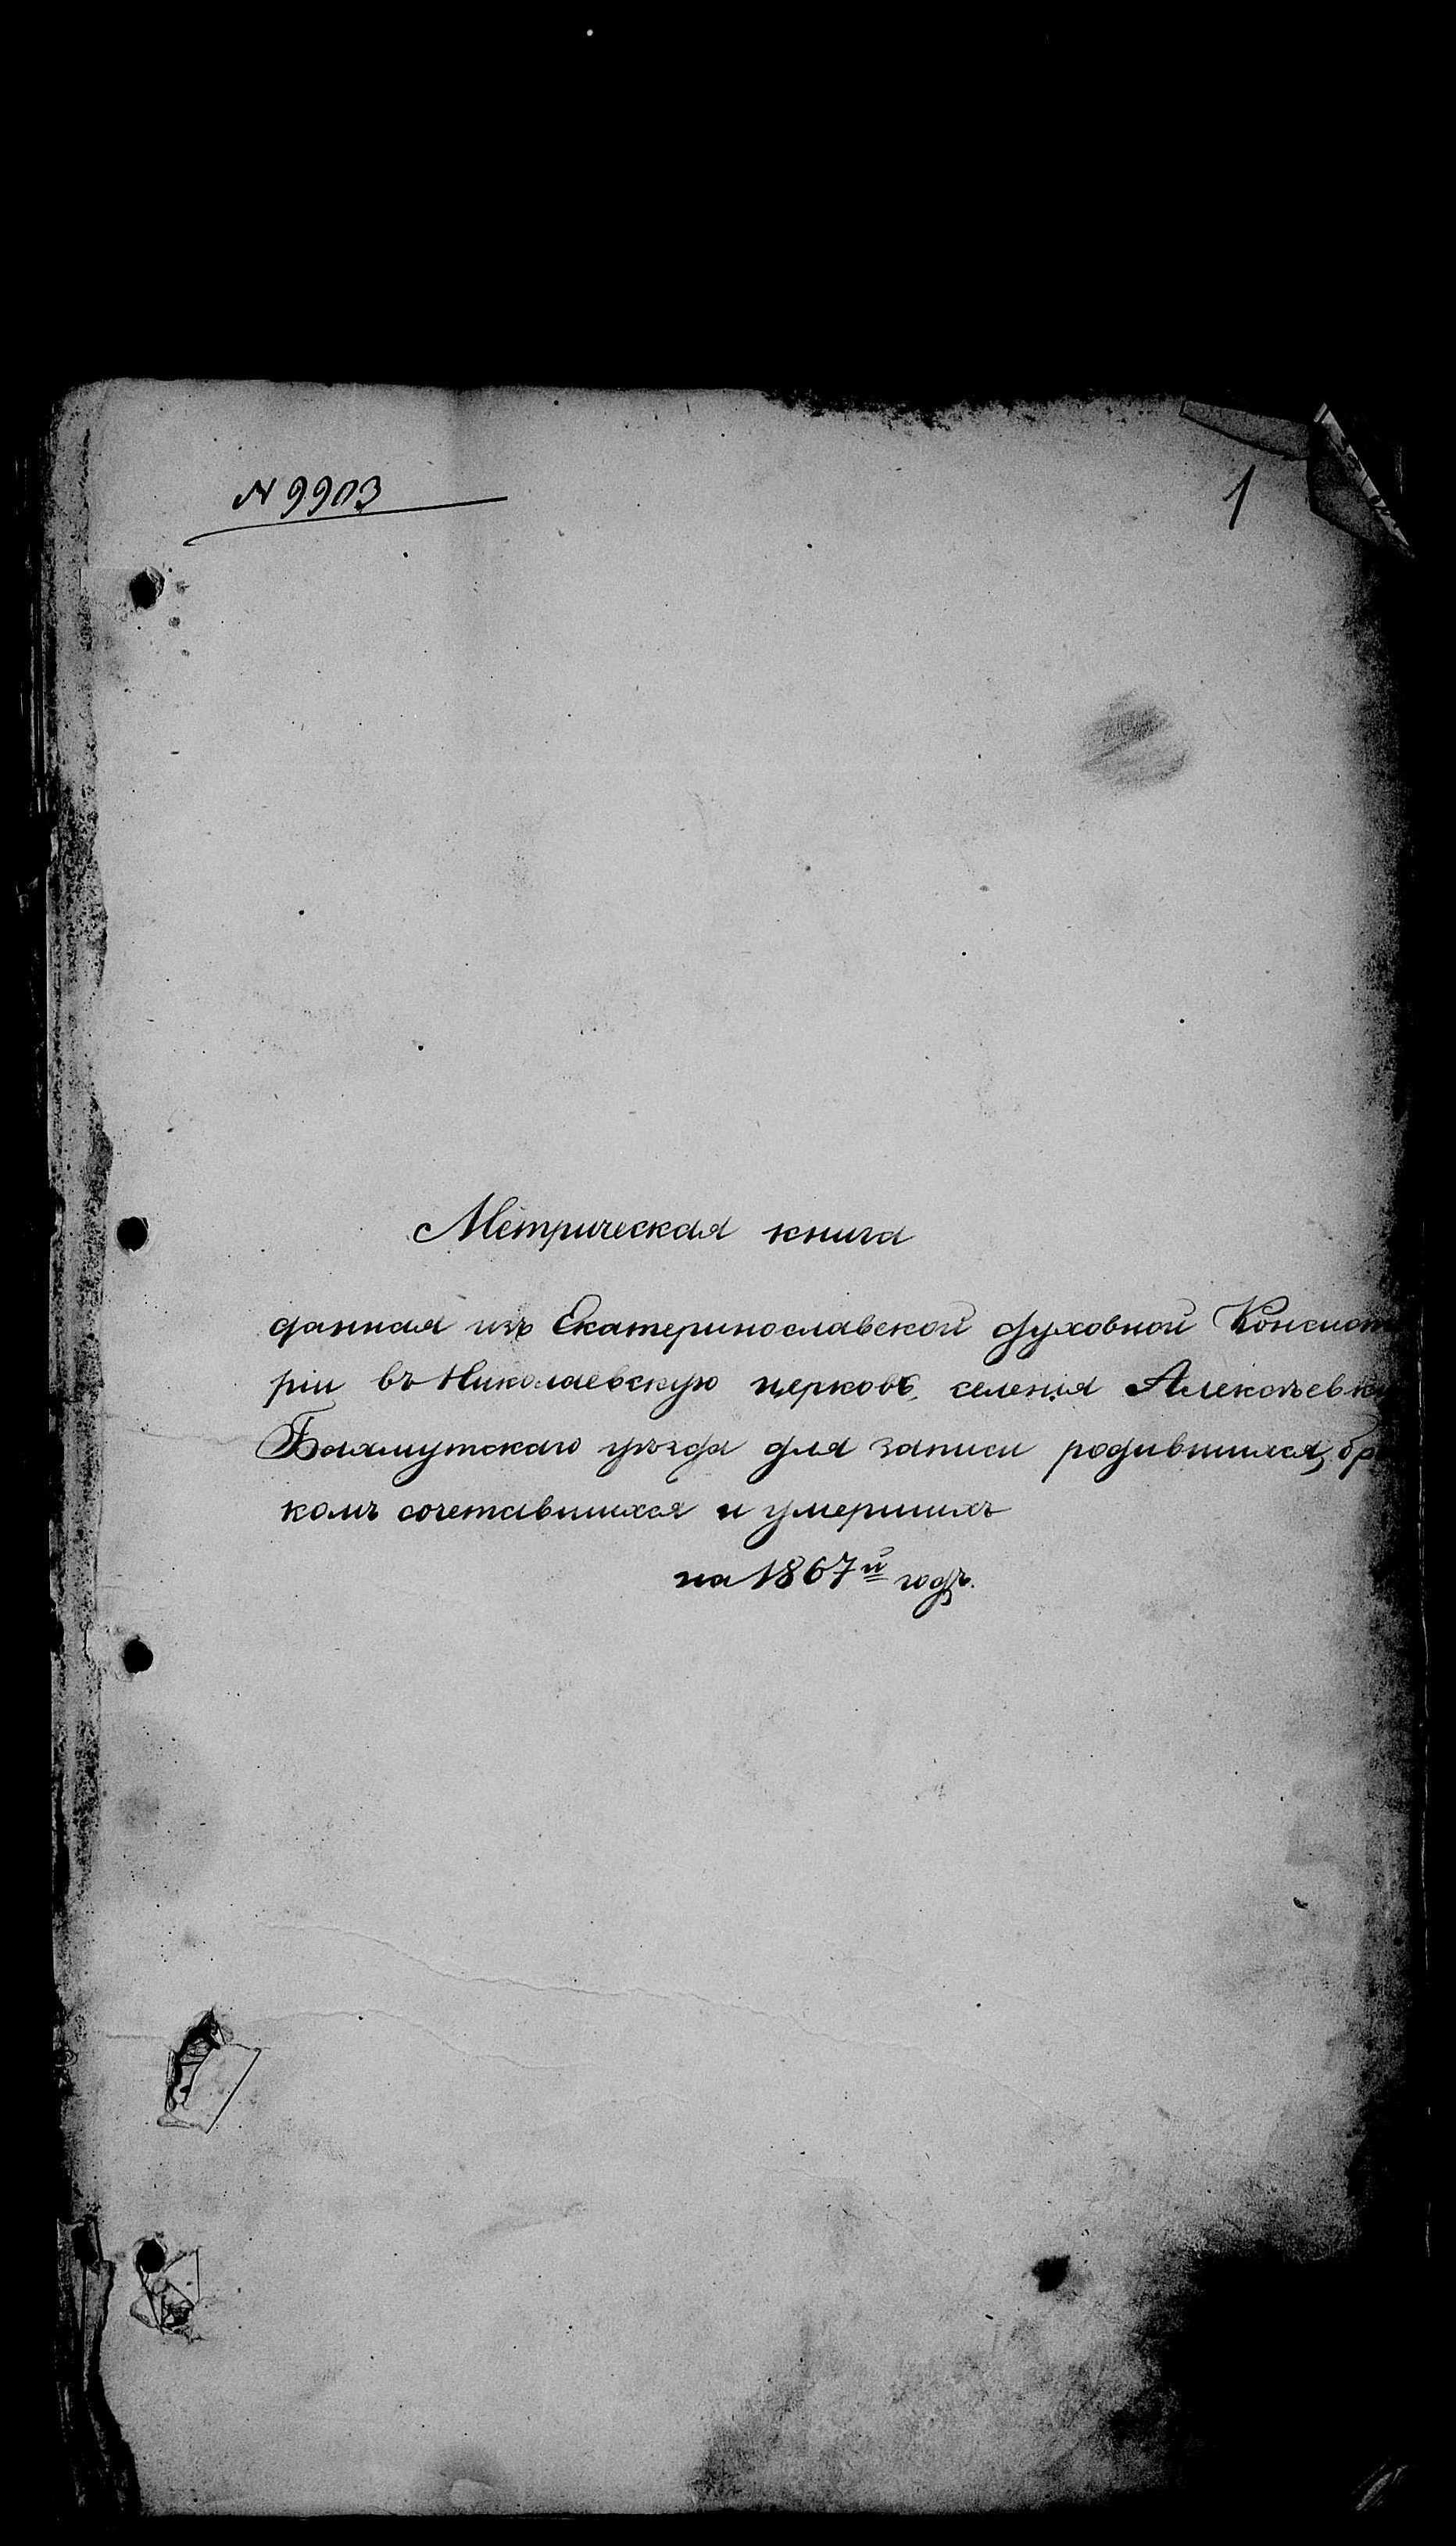 N 9903
1
Метрическая книга
данная изъ Екатеринославской духовной Консисто
ріи въ Николаевскую церковь селенія Алексѣевки
Бахмутскаго уѣзда для записи родившихся, бра
комъ сочетавшихся и умершихъ
на 1867й годъ.